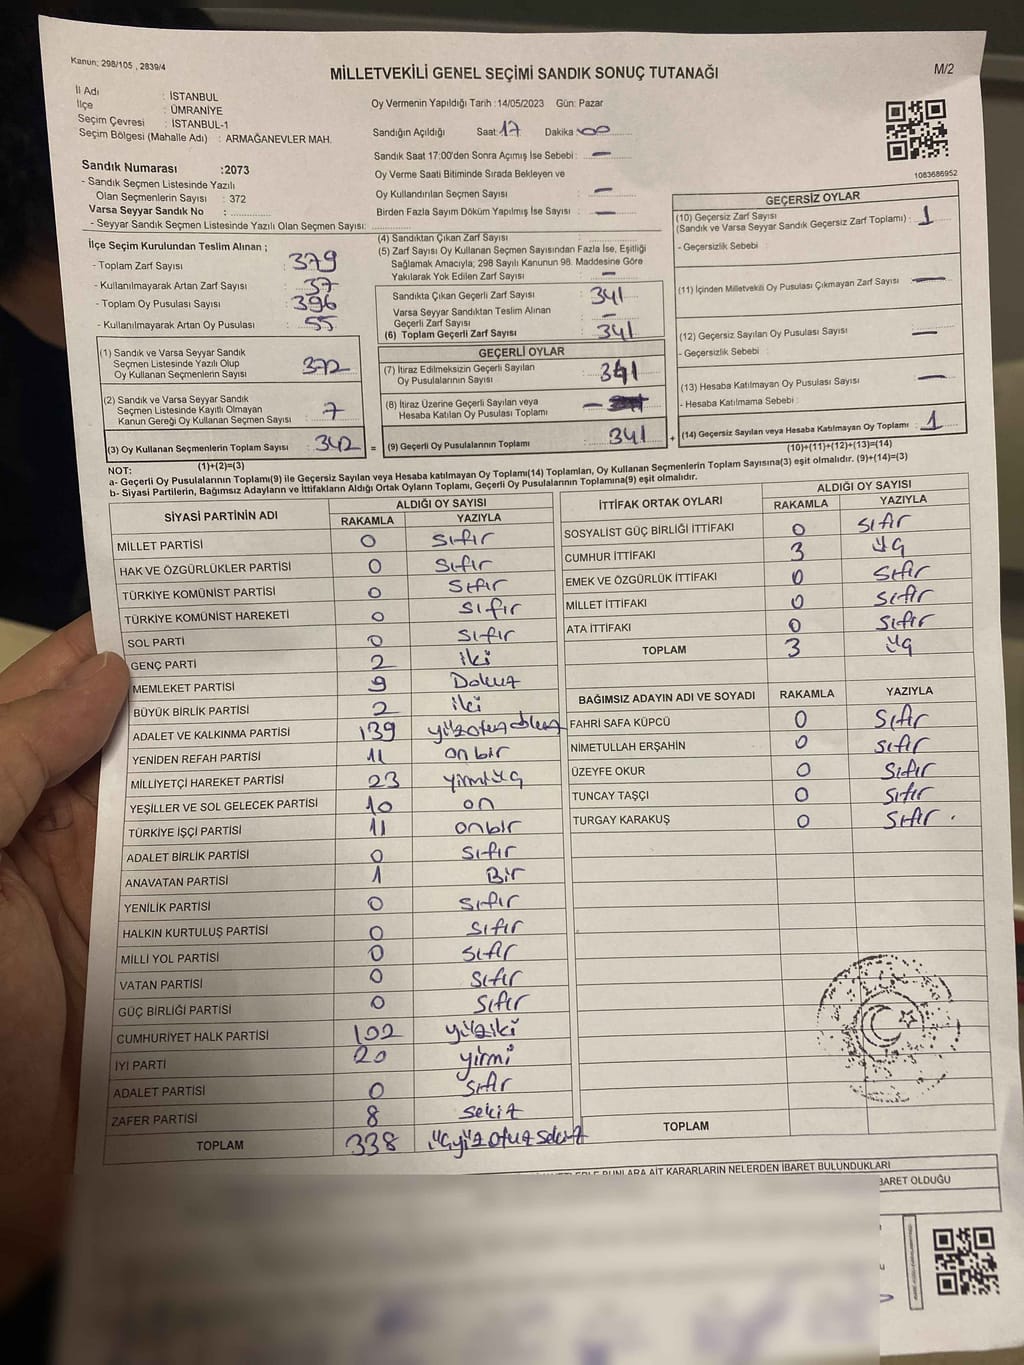 Kanun; 298/105 , 2839/4
MİLLETVEKİLİ GENEL SEÇİMİ SANDIK SONUÇ TUTANAĞI
M/2
İl Adı : İSTANBUL
İlçe : ÜMRANİYE
Seçim Çevresi : İSTANBUL-1
Seçim Bölgesi (Mahalle Adı) : ARMAĞANEVLER MAH.
Sandık Numarası :2073
- Sandık Seçmen Listesinde Yazılı
Olan Seçmenlerin Sayısı : 372
Varsa Seyyar Sandık No :
- Seyyar Sandık Seçmen Listesinde Yazılı Olan Seçmen Sayısı:
Oy Vermenin Yapıldığı Tarih :14/05/2023 Gün: Pazar
Sandığın Açıldığı Saat: 17 Dakika : 00
Sandık Saat 17:00'den Sonra Açımış İse Sebebi : —
Oy Verme Saati Bitiminde Sırada Bekleyen ve
Oy Kullandırılan Seçmen Sayısı : —
Birden Fazla Sayım Döküm Yapılmış İse Sayısı : —
1083686952
İlçe Seçim Kurulundan Teslim Alınan ;
- Toplam Zarf Sayısı : 379
- Kullanılmayarak Artan Zarf Sayısı : 37
- Toplam Oy Pusulası Sayısı : 396
- Kullanılmayarak Artan Oy Pusulası : 55
(1) Sandık ve Varsa Seyyar Sandık
Seçmen Listesinde Yazılı Olup
Oy Kullanan Seçmenlerin Sayısı : 372
(2) Sandık ve Varsa Seyyar Sandık
Seçmen Listesinde Kayıtlı Olmayan
Kanun Gereği Oy Kullanan Seçmen Sayısı : 7
(3) Oy Kullanan Seçmenlerin Toplam Sayısı : 342 =
(1)+(2)=(3)
(4) Sandıktan Çıkan Zarf Sayısı :
(5) Zarf Sayısı Oy Kullanan Seçmen Sayısından Fazla İse, Eşitliği
Sağlamak Amacıyla; 298 Sayılı Kanunun 98. Maddesine Göre
Yakılarak Yok Edilen Zarf Sayısı : —
Sandıkta Çıkan Geçerli Zarf Sayısı : 341
Varsa Seyyar Sandıktan Teslim Alınan
Geçerli Zarf Sayısı : —
(6) Toplam Geçerli Zarf Sayısı : 341
GEÇERLİ OYLAR
(7) İtiraz Edilmeksizin Geçerli Sayılan
Oy Pusulalarının Sayısı : 341
(8) İtiraz Üzerine Geçerli Sayılan veya
Hesaba Katılan Oy Pusulası Toplamı : —
(9) Geçerli Oy Pusulalarının Toplamı : 341 +
GEÇERSİZ OYLAR
(10) Geçersiz Zarf Sayısı
(Sandık ve Varsa Seyyar Sandık Geçersiz Zarf Toplamı) : 1
- Geçersizlik Sebebi :
(11) İçinden Milletvekili Oy Pusulası Çıkmayan Zarf Sayısı : —
(12) Geçersiz Sayılan Oy Pusulası Sayısı : —
- Geçersizlik Sebebi :
(13) Hesaba Katılmayan Oy Pusulası Sayısı : —
- Hesaba Katılmama Sebebi :
(14) Geçersiz Sayılan veya Hesaba Katılmayan Oy Toplamı : 1
(10)+(11)+(12)+(13)=(14)
NOT:
a- Geçerli Oy Pusulalarının Toplamı(9) ile Geçersiz Sayılan veya Hesaba katılmayan Oy Toplamı(14) Toplamları, Oy Kullanan Seçmenlerin Toplam Sayısına(3) eşit olmalıdır. (9)+(14)=(3)
b- Siyasi Partilerin, Bağımsız Adayların ve İttifakların Aldığı Ortak Oyların Toplamı, Geçerli Oy Pusulalarının Toplamına(9) eşit olmalıdır.
SİYASİ PARTİNİN ADI ALDIĞI OY SAYISI
RAKAMLA YAZIYLA
MİLLET PARTİSİ 0 sıfır
HAK VE ÖZGÜRLÜKLER PARTİSİ 0 sıfır
TÜRKİYE KOMÜNİST PARTİSİ 0 sıfır
TÜRKİYE KOMÜNİST HAREKETİ 0 sıfır
SOL PARTİ 0 sıfır
GENÇ PARTİ 2 iki
MEMLEKET PARTİSİ 9 Dokuz
BÜYÜK BİRLİK PARTİSİ 2 iki
ADALET VE KALKINMA PARTİSİ 139 yüzotuzdokuz
YENİDEN REFAH PARTİSİ 11 on bir
MİLLİYETÇİ HAREKET PARTİSİ 23 yirmi üç
YEŞİLLER VE SOL GELECEK PARTİSİ 10 on
TÜRKİYE İŞÇİ PARTİSİ 11 onbir
ADALET BİRLİK PARTİSİ 0 sıfır
ANAVATAN PARTİSİ 1 Bir
YENİLİK PARTİSİ 0 sıfır
HALKIN KURTULUŞ PARTİSİ 0 sıfır
MİLLİ YOL PARTİSİ 0 sıfır
VATAN PARTİSİ 0 sıfır
GÜÇ BİRLİĞİ PARTİSİ 0 sıfır
CUMHURİYET HALK PARTİSİ 102 yüziki
İYİ PARTİ 20 yirmi
ADALET PARTİSİ 0 sıfır
ZAFER PARTİSİ 8 sekiz
TOPLAM 338 üçyüzotuzsekiz
İTTİFAK ORTAK OYLARI ALDIĞI OY SAYISI
RAKAMLA YAZIYLA
SOSYALİST GÜÇ BİRLİĞİ İTTİFAKI 0 sıfır
CUMHUR İTTİFAKI 3 üç
EMEK VE ÖZGÜRLÜK İTTİFAKI 0 sıfır
MİLLET İTTİFAKI 0 sıfır
ATA İTTİFAKI 0 sıfır
TOPLAM 3 üç
BAĞIMSIZ ADAYIN ADI VE SOYADI RAKAMLA YAZIYLA
FAHRİ SAFA KÜPCÜ 0 sıfır
NİMETULLAH ERŞAHİN 0 sıfır
ÜZEYFE OKUR 0 sıfır
TUNCAY TAŞÇI 0 sıfır
TURGAY KARAKUŞ 0 sıfır.
TOPLAM
BUNLARA AİT KARARLARIN NELERDEN İBARET BULUNDUKLARI
BARET OLDUĞU